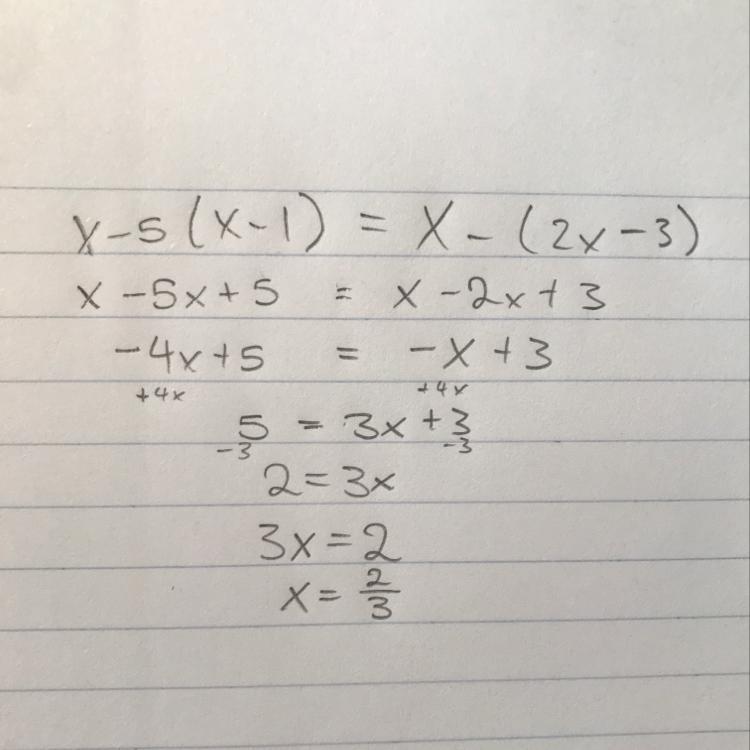 x-5(x-1) = x-(2x-3)
x-5x+5 = x-2x+3
-4x+5 = -x+3
+4x +4x
5 = 3x+3
-3 -3
2=3x
3x=2
x=2/3